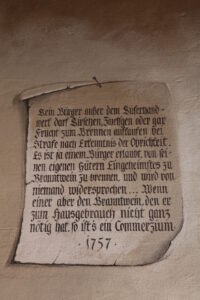 Kein Bürger außer dem Küferhand-
werk darf Kirschen, Zwetsgen oder gar
Frucht zum Brennen aufkaufen bei
Strafe nach Erkenntnis der Obrichkeit.
Es ist ja einem Bürger erlaubt, von sei-
nen eigenen Gütern Eingeheimstes zu
Branntwein zu brennen, und wird von
niemand widersprochen... Wenn
einer aber den Branntwein, den er
zum Hausgebrauch nicht ganz
nötig hat, so ist's ein Commerzium
· 1757 ·